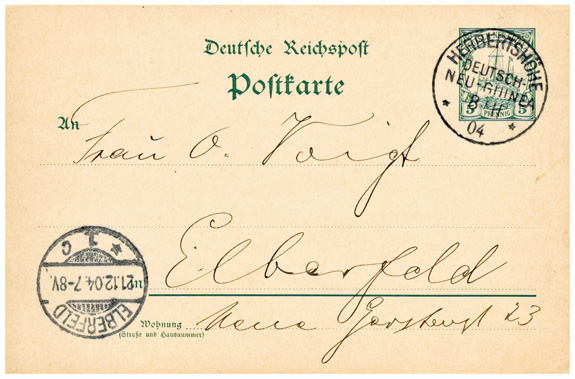 Deutsche Reichspost
Postkarte
HERBERTSHÖHE
DEUTSCH-
NEU-GUINEA
04
5 PFENNIG 5
An
Frau O. Voigt
Elberfeld
Wohnung
(Straße und Hausnummer)
Neue Gerstenst 23
ELBERFELD
21.12.04.7-8V.
1 c